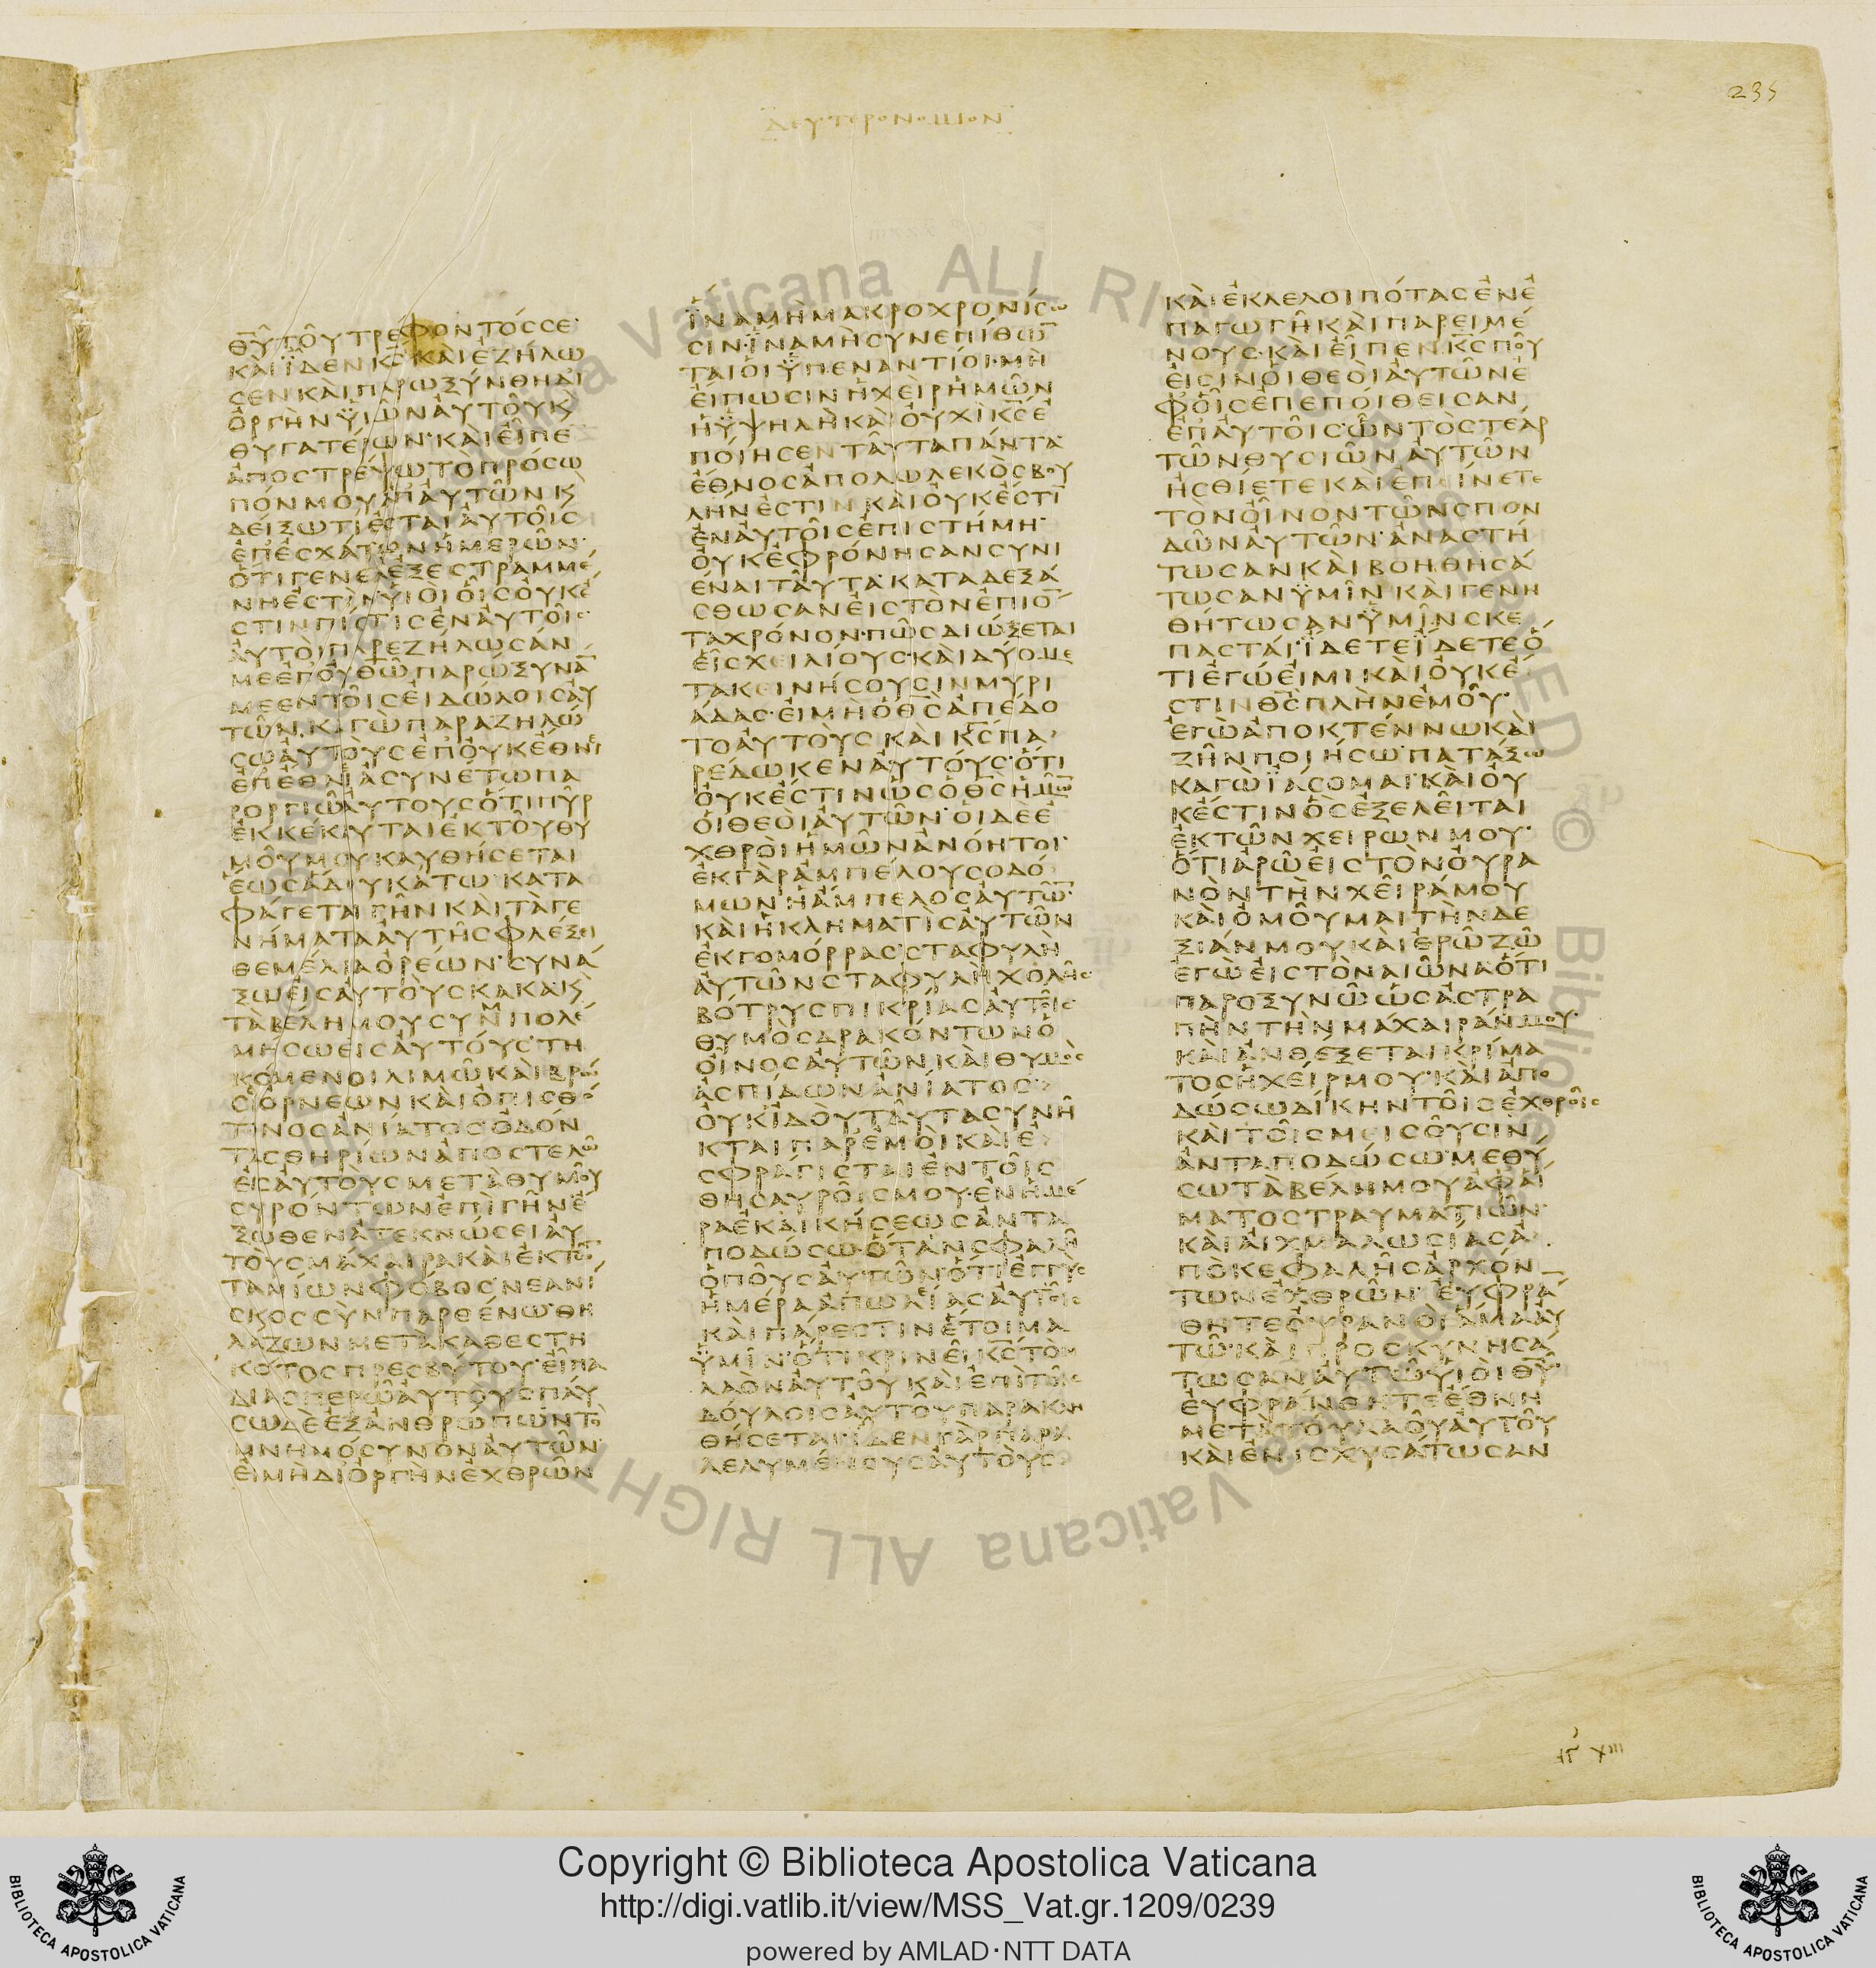 ΔΕΥΤΕΡΟΝΟΜΙΟΝ
235
ΘΥΤΟΥΤΡΕΦΟΝΤΟϹϹΕ
ΚΑΙΪΔΕΝΚϹΚΑΙΕΖΗΛΩ
ϹΕΝΚΑΙΠΑΡΩΞΥΝΘΗΔΙ
ΟΡΓΗΝΫΙΩΝΑΥΤΟΥΚ
ΘΥΓΑΤΕΡΩΝΚΑΙΕΙΠΕ
ΑΠΟϹΤΡΕΨΩΤΟΠΡΟϹΩ
ΠΟΝΜΟΥΑΠΑΥΤΩΝΚ
ΔΕΙΞΩΤΙΕϹΤΑΙΑΥΤΟΙϹ
ΕΠΕϹΧΑΤΩΝΗΜΕΡΩΝ
ΟΤΙΓΕΝΕΑΕΞΕϹΤΡΑΜΜΕ
ΝΗΕϹΤΙΝΥΙΟΙΟΙϹΟΥΚΕ
ϹΤΙΝΠΙϹΤΙϹΕΝΑΥΤΟΙϹ
ΑΥΤΟΙΠΑΡΕΖΗΛΩϹΑΝ
ΜΕΕΠΟΥΘΩΠΑΡΩΞΥΝΑ
ΜΕΕΝΤΟΙϹΕΙΔΩΛΟΙϹΑΥ
ΤΩΝΚΑΓΩΠΑΡΑΖΗΛΩ
ϹΩΑΥΤΟΥϹΕΠΟΥΚΕΘΝΕΙ
ΕΠΕΘΝΙΑϹΥΝΕΤΩΠΑ
ΡΟΡΓΙΩΑΥΤΟΥϹΟΤΙΠΥΡ
ΕΚΚΕΚΑΥΤΑΙΕΚΤΟΥΘΥ
ΜΟΥΜΟΥΚΑΥΘΗϹΕΤΑΙ
ΕΩϹΑΔΟΥΚΑΤΩΚΑΤΑ
ΦΑΓΕΤΑΙΓΗΝΚΑΙΤΑΓΕ
ΝΗΜΑΤΑΑΥΤΗϹΦΛΕΞΕΙ
ΘΕΜΕΛΙΑΟΡΕΩΝϹΥΝΑ
ΞΩΕΙϹΑΥΤΟΥϹΚΑΚΑΚ
ΤΑΒΕΛΗΜΟΥϹΥΜΠΟΛΕ
ΜΗϹΩΕΙϹΑΥΤΟΥϹΤΗ
ΚΟΜΕΝΟΙΛΙΜΩΚΑΙΒΡΩ
ϹΙΟΡΝΕΩΝΚΑΙΟΠΙϹΘΟ
ΤΙΝΟϹΑΝΙΑΤΟϹΟΔΟΝ
ΤΑϹΘΗΡΙΩΝΑΠΟϹΤΕΛΩ
ΕΙϹΑΥΤΟΥϹΜΕΤΑΘΥΜΟΥ
ϹΥΡΟΝΤΩΝΕΠΙΓΗΝΕ
ΞΩΘΕΝΑΤΕΚΝΩϹΕΙΑΥ
ΤΟΥϹΜΑΧΑΙΡΑΚΑΙΕΚΤΩ
ΤΑΜΙΩΝΦΟΒΟϹΝΕΑΝΙ
ϹΚΟϹϹΥΝΠΑΡΘΕΝΩΘΗ
ΛΑΖΩΝΜΕΤΑΚΑΘΕϹΤΗ
ΚΟΤΟϹΠΡΕϹΒΥΤΟΥΕΙΠΑ
ΔΙΑϹΠΕΡΩΑΥΤΟΥϹΠΑΥ
ϹΩΔΕΕΞΑΝΘΡΩΠΩΝΤΟ
ΜΝΗΜΟϹΥΝΟΝΑΥΤΩΝ
ΕΙΜΗΔΙΟΡΓΗΝΕΧΘΡΩΝ
ΪΝΑΜΗΜΑΚΡΟΧΡΟΝΙϹΩ
ϹΙΝΪΝΑΜΗϹΥΝΕΠΙΘΩ
ΤΑΙΟΙΫΠΕΝΑΝΤΙΟΙΜΗ
ΕΙΠΩϹΙΝΗΧΕΙΡΗΜΩΝ
ΗΫΨΗΛΗΚΑΙΟΥΧΙΚϹΕ
ΠΟΙΗϹΕΝΤΑΥΤΑΠΑΝΤΑ
ΕΘΝΟϹΑΠΟΛΩΛΕΚΟϹΒΟΥ
ΛΗΝΕϹΤΙΝΚΑΙΟΥΚΕϹΤΙ
ΕΝΑΥΤΟΙϹΕΠΙϹΤΗΜΗ
ΟΥΚΕΦΡΟΝΗϹΑΝϹΥΝΙ
ΕΝΑΙΤΑΥΤΑΚΑΤΑΔΕΞΑ
ϹΘΩϹΑΝΕΙϹΤΟΝΕΠΙΟ
ΤΑΧΡΟΝΟΝΠΩϹΔΙΩΞΕΤΑΙ
ΕΙϹΧΕΙΛΙΟΥϹΚΑΙΔΥΟΜΕ
ΤΑΚΕΙΝΗϹΟΥϹΙΝΜΥΡΙ
ΑΔΑϹΕΙΜΗΟΘϹΑΠΕΔΟ
ΤΟΑΥΤΟΥϹΚΑΙΚϹΠΑ
ΡΕΔΩΚΕΝΑΥΤΟΥϹΟΤΙ
ΟΥΚΕϹΤΙΝΩϹΟΘϹΗΜΩ
ΟΙΘΕΟΙΑΥΤΩΝΟΙΔΕΕ
ΧΘΡΟΙΗΜΩΝΑΝΟΗΤΟΙ
ΕΚΓΑΡΑΜΠΕΛΟΥϹΟΔΟ
ΜΩΝΗΑΜΠΕΛΟϹΑΥΤΩ
ΚΑΙΗΚΛΗΜΑΤΙϹΑΥΤΩΝ
ΕΚΓΟΜΟΡΡΑϹϹΤΑΦΥΛΗ
ΑΥΤΩΝϹΤΑΦΥΛΗΧΟΛΗϹ
ΒΟΤΡΥϹΠΙΚΡΙΑϹΑΥΤΟΙϹ
ΘΥΜΟϹΔΡΑΚΟΝΤΩΝΟ
ΟΙΝΟϹΑΥΤΩΝΚΑΙΘΥΜΟϹ
ΑϹΠΙΔΩΝΑΝΙΑΤΟϹ
ΟΥΚΙΔΟΥΤΑΥΤΑϹΥΝΗ
ΚΤΑΙΠΑΡΕΜΟΙΚΑΙΕ
ϹΦΡΑΓΙϹΤΑΙΕΝΤΟΙϹ
ΘΗϹΑΥΡΟΙϹΜΟΥΕΝΗΜΕ
ΡΑΕΚΔΙΚΗϹΕΩϹΑΝΤΑ
ΠΟΔΩϹΩΟΤΑΝϹΦΑΛΗ
ΟΠΟΥϹΑΥΤΩΝΟΤΙΕΓΓΥϹ
ΗΜΕΡΑΑΠΩΛΕΙΑϹΑΥΤΟΙϹ
ΚΑΙΠΑΡΕϹΤΙΝΕΤΟΙΜΑ
ΫΜΙΝΟΤΙΚΡΙΝΕΙΚϹΤΟΝ
ΛΑΟΝΑΥΤΟΥΚΑΙΕΠΙΤΟΙϹ
ΔΟΥΛΟΙϹΑΥΤΟΥΠΑΡΑΚΛΗ
ΘΗϹΕΤΑΙΪΔΕΝΓΑΡΠΑΡΑ
ΛΕΛΥΜΕΝΟΥϹΑΥΤΟΥϹ
ΚΑΙΕΚΛΕΛΟΙΠΟΤΑϹΕΝΕ
ΠΑΓΩΓΗΚΑΙΠΑΡΕΙΜΕ
ΝΟΥϹΚΑΙΕΙΠΕΝΚϹΠΟΥ
ΕΙϹΙΝΟΙΘΕΟΙΑΥΤΩΝΕ
ΦΟΙϹΕΠΕΠΟΙΘΕΙϹΑΝ
ΕΠΑΥΤΟΙϹΩΝΤΟϹΤΕΑΡ
ΤΩΝΘΥϹΙΩΝΑΥΤΩΝ
ΗϹΘΙΕΤΕΚΑΙΕΠΙΝΕΤΕ
ΤΟΝΟΙΝΟΝΤΩΝϹΠΟΝ
ΔΩΝΑΥΤΩΝΑΝΑϹΤΗ
ΤΩϹΑΝΚΑΙΒΟΗΘΗϹΑ
ΤΩϹΑΝΫΜΙΝΚΑΙΓΕΝΗ
ΘΗΤΩϹΑΝΫΜΙΝϹΚΕ
ΠΑϹΤΑΙΪΔΕΤΕΪΔΕΤΕΟ
ΤΙΕΓΩΕΙΜΙΚΑΙΟΥΚΕ
ϹΤΙΝΘϹΠΛΗΝΕΜΟΥ
ΕΓΩΑΠΟΚΤΕΝΝΩΚΑΙ
ΖΗΝΠΟΙΗϹΩΠΑΤΑΞΩ
ΚΑΓΩΪΑϹΟΜΑΙΚΑΙΟΥ
ΚΕϹΤΙΝΟϹΕΞΕΛΕΙΤΑΙ
ΕΚΤΩΝΧΕΙΡΩΝΜΟΥ
ΟΤΙΑΡΩΕΙϹΤΟΝΟΥΡΑ
ΝΟΝΤΗΝΧΕΙΡΑΜΟΥ
ΚΑΙΟΜΟΥΜΑΙΤΗΝΔΕ
ΞΙΑΝΜΟΥΚΑΙΕΡΩΖΩ
ΕΓΩΕΙϹΤΟΝΑΙΩΝΑΟΤΙ
ΠΑΡΟΞΥΝΩΩϹΑϹΤΡΑ
ΠΗΝΤΗΝΜΑΧΑΙΡΑΝΜΟΥ
ΚΑΙΑΝΘΕΞΕΤΑΙΚΡΙΜΑ
ΤΟϹΗΧΕΙΡΜΟΥΚΑΙΑΠΟ
ΔΩϹΩΔΙΚΗΝΤΟΙϹΕΧΘΡΟΙϹ
ΚΑΙΤΟΙϹΜΕΙϹΟΥϹΙΝ
ΑΝΤΑΠΟΔΩϹΩΜΕΘΥ
ϹΩΤΑΒΕΛΗΜΟΥΑΦΑΙ
ΜΑΤΟϹΤΡΑΥΜΑΤΙΩΝ
ΚΑΙΑΙΧΜΑΛΩϹΙΑϹΑ
ΠΟΚΕΦΑΛΗϹΑΡΧΟΝ
ΤΩΝΕΧΘΡΩΝΕΥΦΡΑ
ΘΗΤΕΟΥΡΑΝΟΙΑΜΑΑΥ
ΤΩΚΑΙΠΡΟϹΚΥΝΗϹΑ
ΤΩϹΑΝΑΥΤΩΥΙΟΙΘΥ
ΕΥΦΡΑΝΘΗΤΕΕΘΝΗ
ΜΕΤΑΤΟΥΛΑΟΥΑΥΤΟΥ
ΚΑΙΕΝΙϹΧΥϹΑΤΩϹΑΝ
Copyright © Biblioteca Apostolica Vaticana
http://digi.vatlib.it/view/MSS_Vat.gr.1209/0239
powered by AMLAD·NTT DATA
BIBLIOTECA APOSTOLICA VATICANA
BIBLIOTECA APOSTOLICA VATICANA